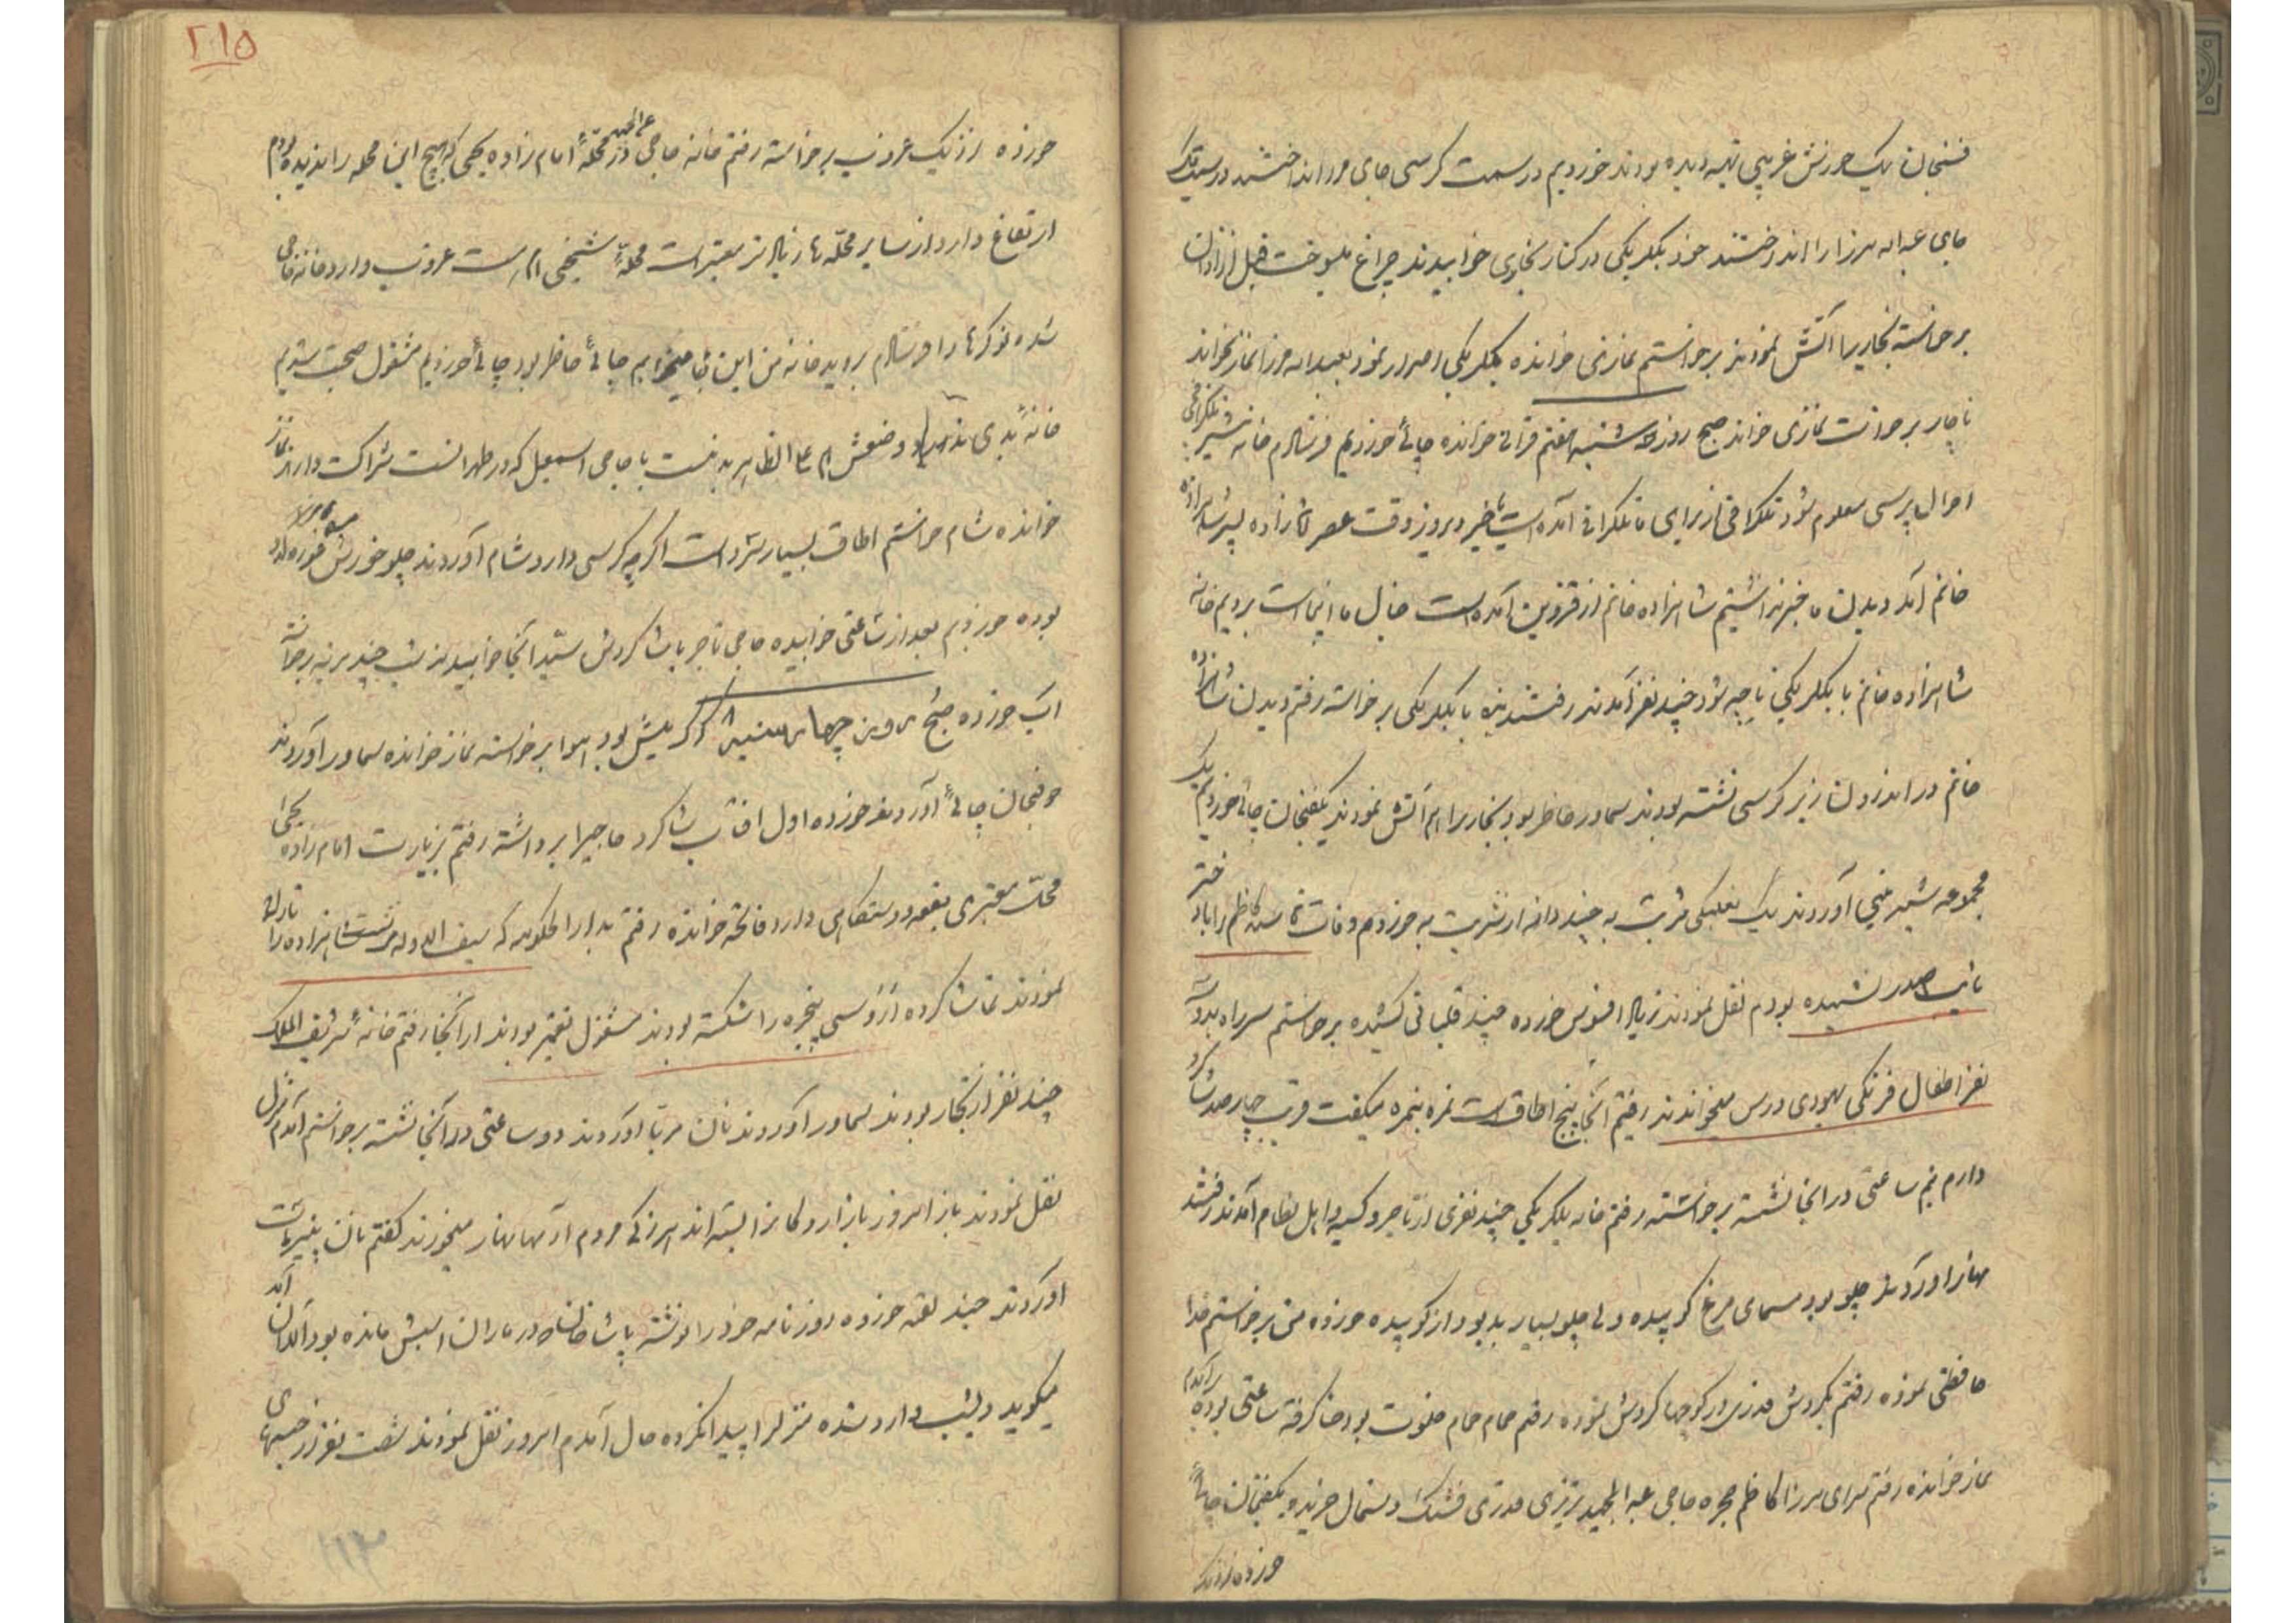 فسنجان یک خورش غریبی تهیه دیده بودند خوردیم در سمت کرسی جای مرا انداختند در سمت دیگر
جای عبداله میرزا را انداختند خود بیگلربیگی در کنار بخاری خوابیدند چراغ میسوخت قبل از اذان
برخواسته بخاریرا آتش نمودند برخواستم نمازی خوانده بیگلربیگی اصرار نمود بعبداله میرزا نماز بخواند
ناچار برخواست نمازی خواند صبح روز سه شنبه هفتم قرآنی خوانده چائی خوردیم فرستادم خانه تلگرافچی
احوال پرسی معلوم شود تلگرافی از برای ما تلگرافی آمده است یا خیر دیروز وقت عصر
خانم آمد دیدن ما خبر نداشتیم شاهزاده خانم از قزوین آمده است خیال ما اینجا است برویم خانه
شاهزاده خانم با بیگلربیگی تا چه شود چند نفر آمدند رفتند بنده با بیگلربیگی برخواسته رفتم دیدن شاهزاده
خانم در اندرون زیر کرسی نشسته بودند سماور حاضر بود بخاریرا هم آتش نمودند یکفنجان چائی خوردیم یک
مجموعه شیرینی آوردند یک نعلبکی شربت به چند دانه از شربت به خوردم وفات دختر
نایب الصدر نشنیده بودم نقل نمودند زیاد افسوس خورده چند قلیانی کشیده برخواستم سر راه
نفر اطفال فرنگی یهودی درس میخواندند رفتیم آنجا پنج اطاق است نمره بنمره میگفت قریب چهارصد شاگرد
دارم نیم ساعتی در اینجا نشسته برخواسته رفتم خانه بیگلربیگی چند نفری از تاجر و کسبه و اهل نظام آمدند رفتند
نهار آوردند چلو بود مسمای مرغ کوبیده ولی چلو بسیار بد بود از کوبیده خورده من برخواستم خدا
حافظی نموده رفتم بگردش قدری در کوچها گردش نموده رفتم حمام حمام خلوت بود حنا گرفته ساعتی بوده برآمدم
نماز خوانده رفتم سرای میرزا کاظم حجره حاجی عبدالحمید تبریزی قدری فشنگ دستمال خریده یکفنجان چائی
خورده نزدیک
۲۱۵
خورده نزدیک غروب برخواسته رفتم خانه حاجی در محله امام زاده یحیی که هیچ این محله را ندیده بودم
ارتفاع دارد از سایر محله ها زیادتر معتبر است محله شیخی ام است غروب وارد خانه حاجی
شده نوکرها را فرستادم بروید خانه من این شب اینجا میخوابم چائی حاضر بود چائی خوردیم مشغول صحبت شدیم
خانه بدی ندارد وضعش هم علی الظاهر بد نیست با حاجی اسمعیل که در طهران است شراکت دارد نماز
خوانده شام خواستم اطاق بسیار سرد است اگرچه کرسی دارد شام آوردند چلو خورش
بوده خوردم بعد از ساعتی خوابیده حاجی تاجر باشا گردش سید آنجا خوابیدند شب چند مرتبه برخواسته
آب خورده صبح روز چهارشنبه ۸ گرگ میش بود هوا برخواسته نماز خوانده سماور آوردند
دو فنجان چائی آوردند خورده اول آفتاب شاگرد حاجیرا برداشته رفتم بزیارت امام زاده یحیی
محل معتبری بقعه و دستگاهی دارد فاتحه خوانده رفتم بدارالحکومه که سیف الدوله
نمودند تماشا کرده ارّوسی پنجره را شکسته بودند مشغول تعمیر بودند از آنجا رفتم خانه شریف الملک
چند نفر از تجار بودند سماور آوردند نان مربا آوردند دو ساعتی در آنجا نشسته برخواستم آمدم منزل
نقل نمودند باز امروز بازار و دکانرا بسته اند مردم آنها نهار میخورند گفتم نان پنیر ماست
آوردند چند لقمه خورده روزنامه خود را نوشته پاشا خان که در باران اسبش مانده بود الان آمد
میگوید دیشب وارد شده منزلرا پیدا نکرده حال آمدم امروز نقل نمودند شصت نفر از